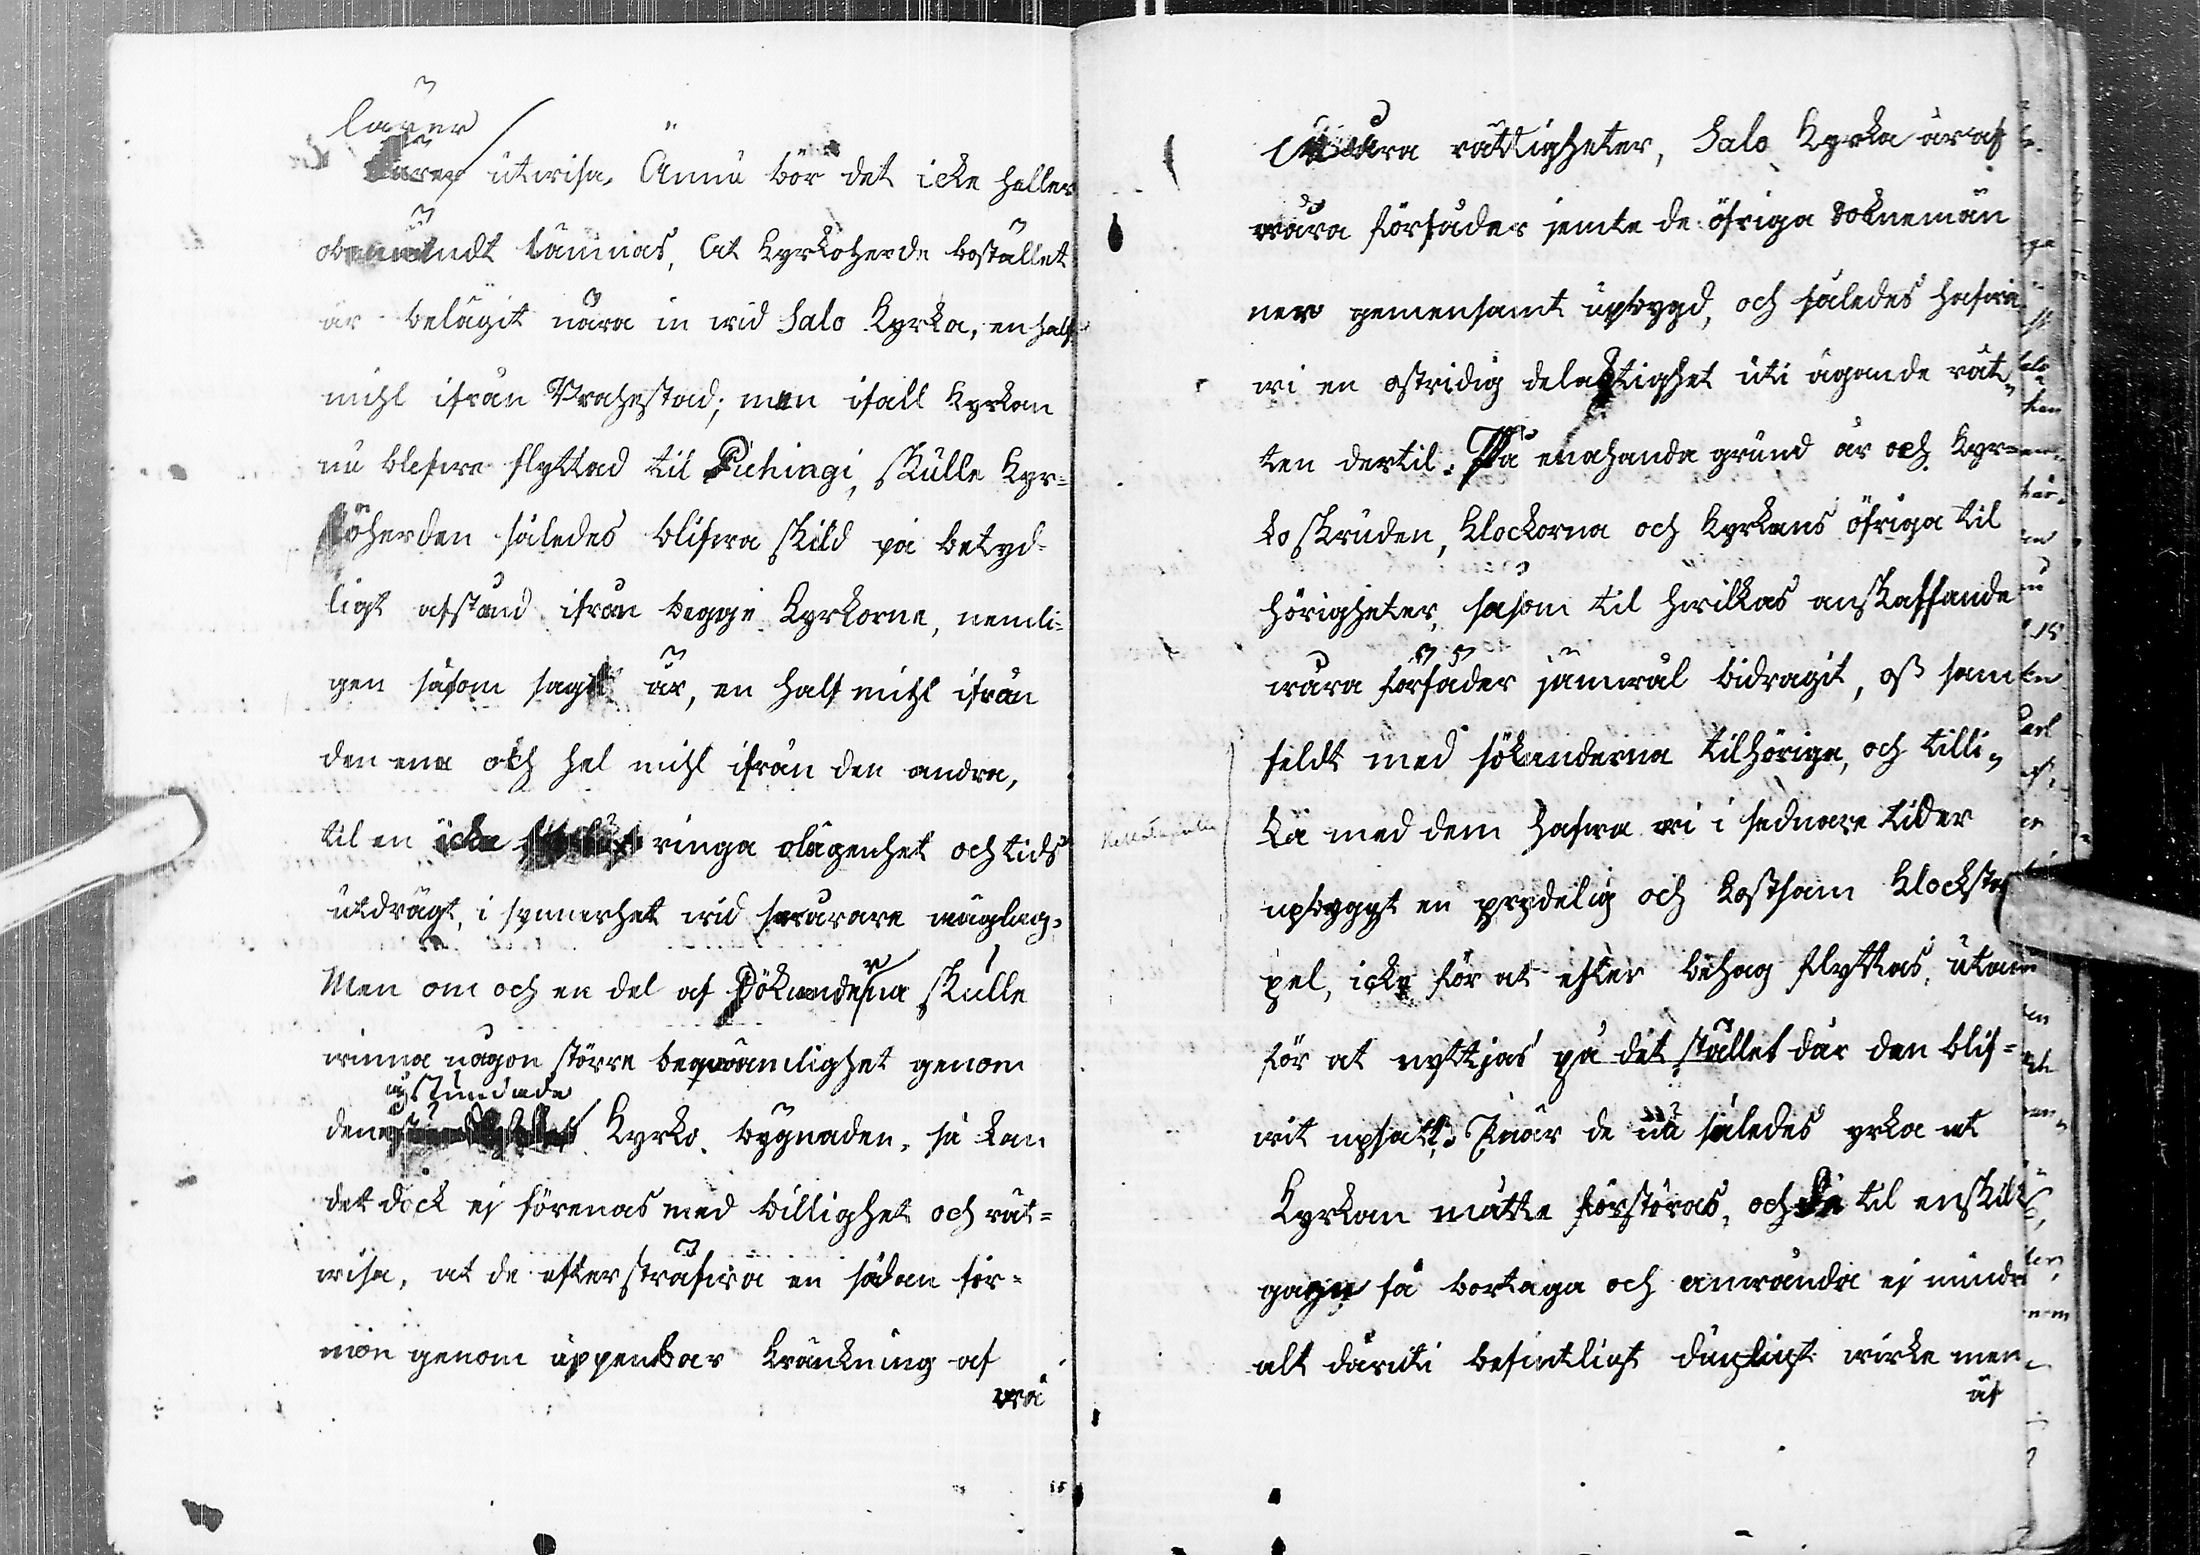 lärer
lärer utwisa. Ännu bör det icke heller
obenämdt lämnas, at Kyrkoherde bostället
är belägit nära in wid Salo Kyrka, en half
mihl ifrån Brahestad; men ifall Kyrkan
nu blefwe flyttad til Pichingi, skulle Kyr=
koherden således blifwa skild på betyd=
ligt afstånd ifrån begge Kyrkorne, nemli=
gen såsom sagt är, en half mihl ifrån
den ena och hel mihl ifrån den andra,
til en icke ringa olägenhet och tids
utdrägt, i synnerhet wid swårare wäglag.
Men om och en del af Sökanderna skulle
winna någon större beqwämlighet genom
åstundade
den Kyrko bygnaden, så kan
det dock ej förenas med billighet och rät=
wisa, at de eftersträfwa en sådan för=
mon genom uppenbar kränkning af
wå
wåra rättigheter, Salo Kyrka är af
wåra förfäder jemte de öfriga Soknemän
ner gemensamt upbygd, och således hafwa
wi en ostridig delaktighet uti ägande rät=
ten dertil. På enahanda grund är och Kyr=
koskruden, Klockorna och Kyrkans öfriga til
hörigheter, såsom til hwilkas anskaffande
wåra förfäder jämwäl bidragit, oss sam
feldt med sökanderna tilhöriga, och tilli=
ka med dem hafwa wi i sednare tider
upbyggt en prydelig och kostsam Klocksta
pel, icke för at efter behag flyttas, utan
för at nyttjas på det stället där den blif=
wit upsatt. När de nu således yrka at
Kyrkan måtte förstöras, och de til enskildt
gagn få borttaga och använda ej mindre
alt däruti befintligt dugligt wirke men
äf